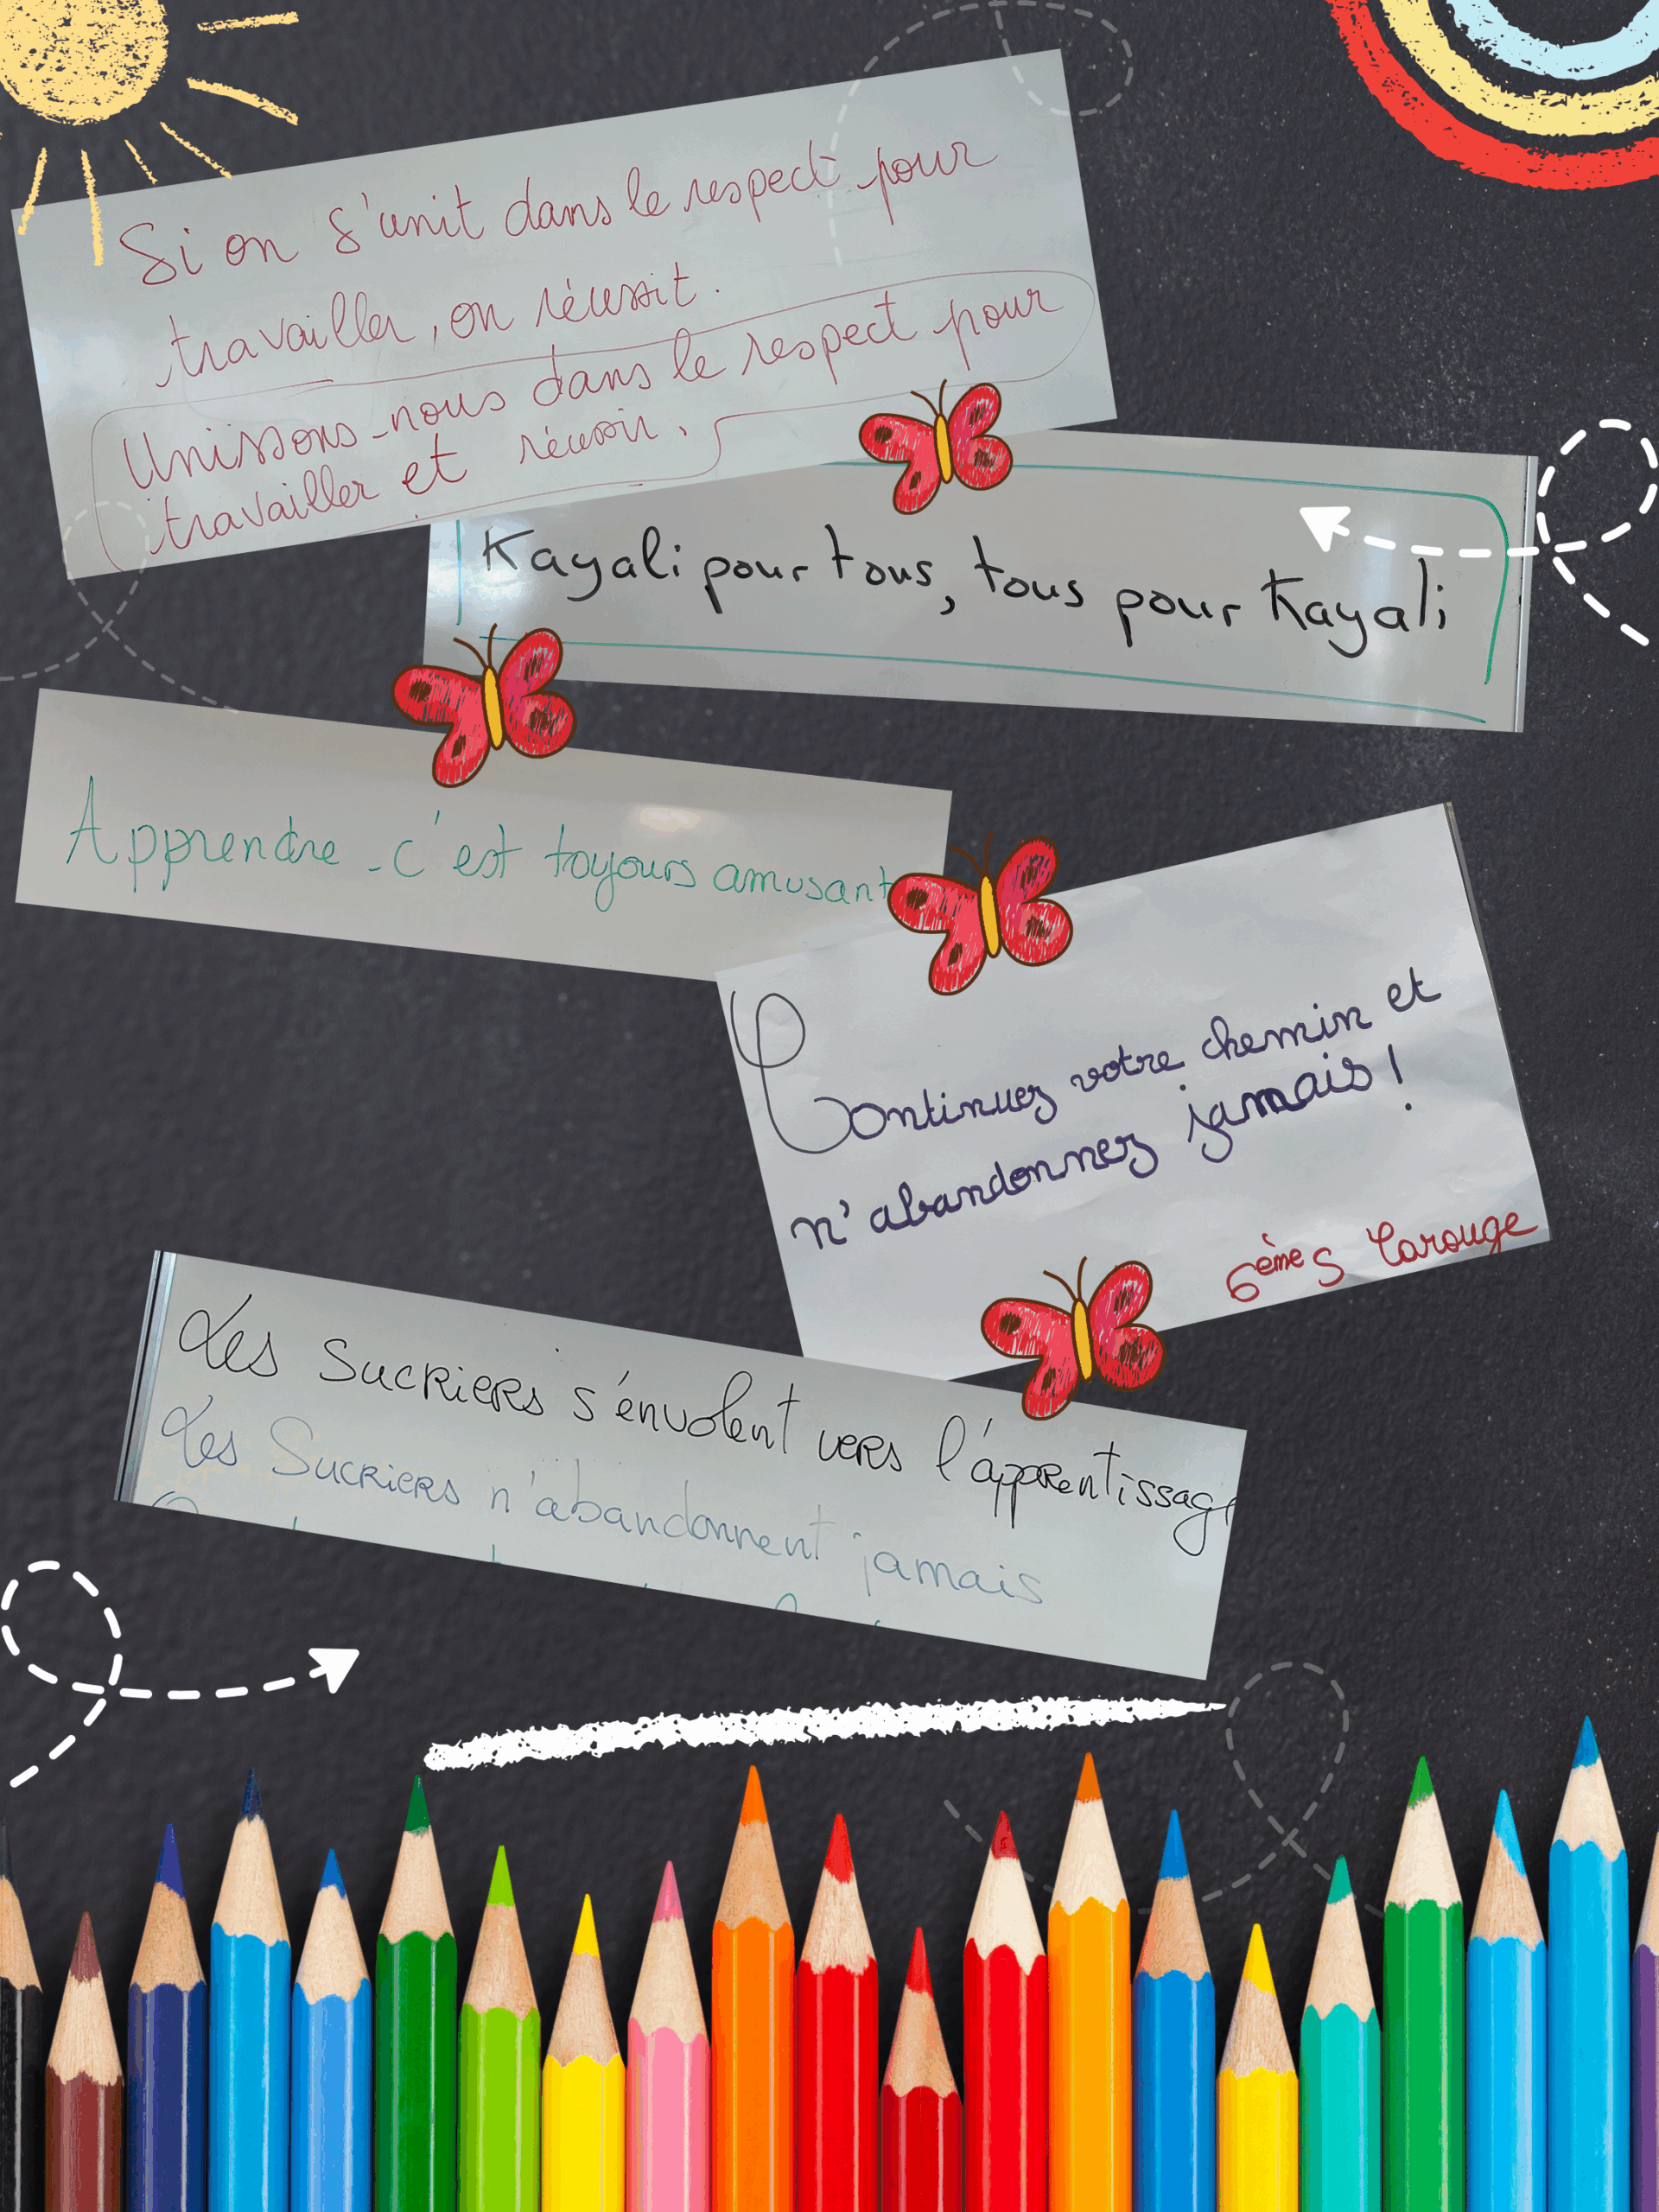 Si on s'unit dans le respect pour
travailler, on réussit.
Unissons-nous dans le respect pour
travailler et réussir.
Kayali pour tous, tous pour Kayali
Apprendre - c'est toujours amusant
Continuez votre chemin et
n'abandonnez jamais !
6èmes Carouge
Les Sucriers s'énvolent vers l'apprentissage
Les Sucriers n'abandonnent jamais